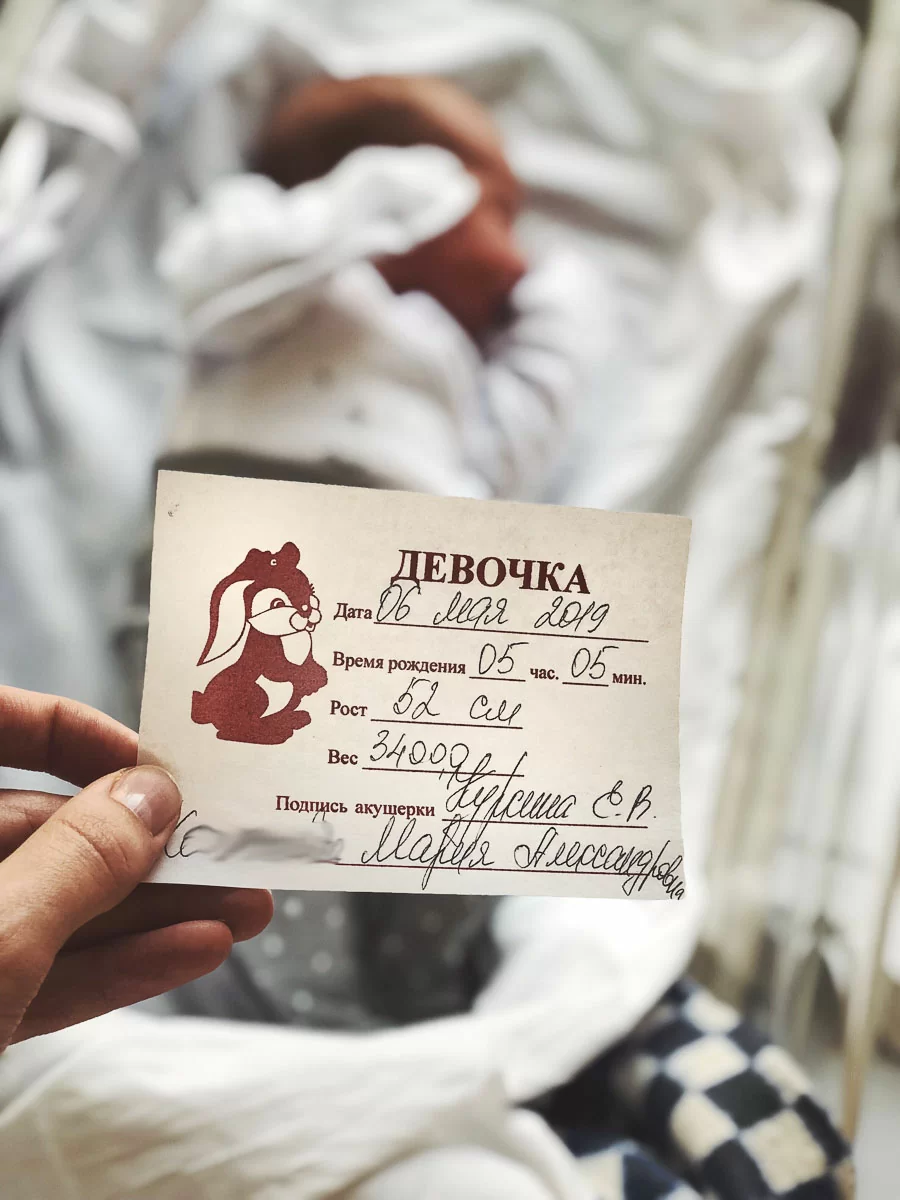 ДЕВОЧКА
Дата 06 мая 2019
Время рождения 05 час. 05 мин.
Рост 52 см
Вес 3400г
Подпись акушерки Е.В.
Мария Александровна